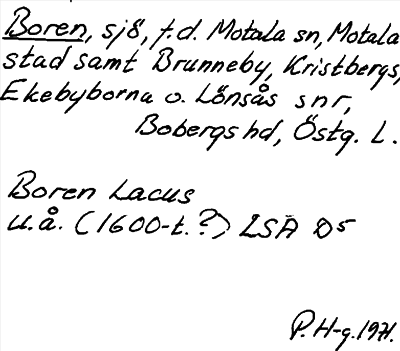 Boren, sjö, f.d. Motala sn, Motala
stad samt Brunneby, Kristbergs,
Ekebyborna o. Lönsås snr,
Bobergs hd, Östg. L.
Boren Lacus
u.å. (1600-t.?) LSA D5
P. H-g. 1971.